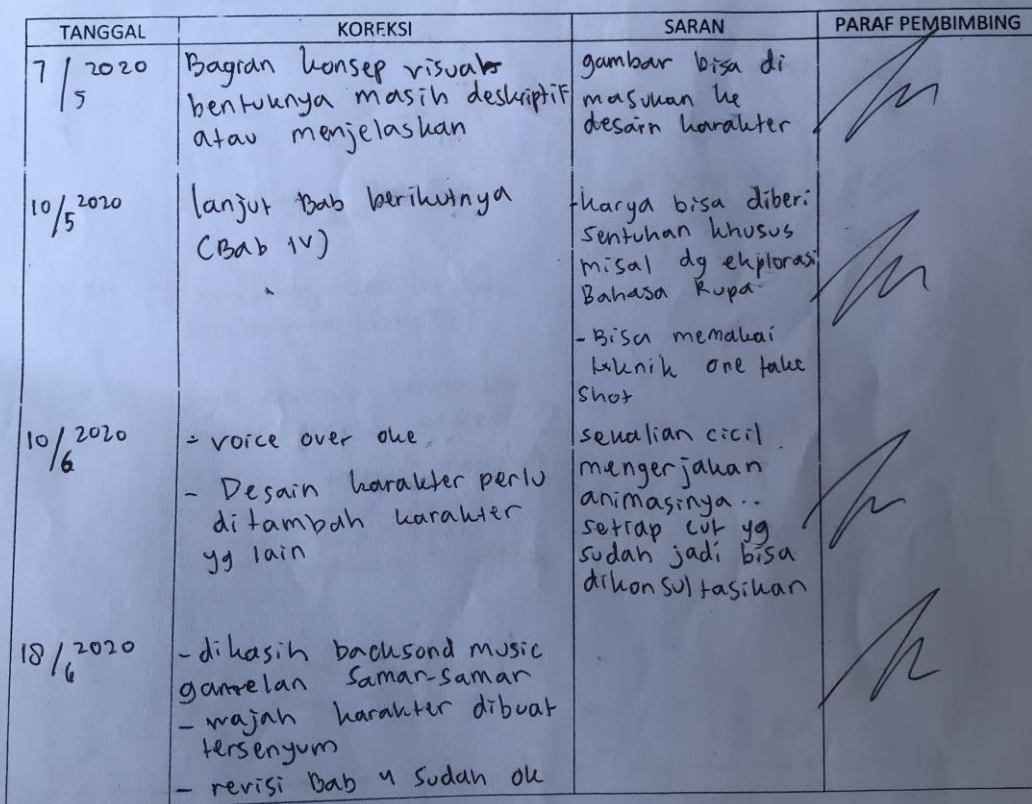 TANGGAL KOREKSI SARAN PARAF PEMBIMBING
7/5 2020
Bagian konsep visual
bentuknya masih deskriptif
atau menjelaskan
gambar bisa di
masukan ke
desain karakter
10/5 2020
lanjut Bab berikutnya
(Bab IV)
-karya bisa diberi
sentuhan khusus
misal dg ekplorasi
Bahasa Rupa
- Bisa memakai
teknik one take
shot
10/6 2020
- voice over oke
- Desain karakter perlu
ditambah karakter
yg lain
sekalian cicil
mengerjakan
animasinya..
setiap cut yg
sudah jadi bisa
dikonsultasikan
18/6 2020
- dikasih backsond music
gamelan samar-samar
- wajah karakter dibuat
tersenyum
- revisi Bab 4 sudah ok